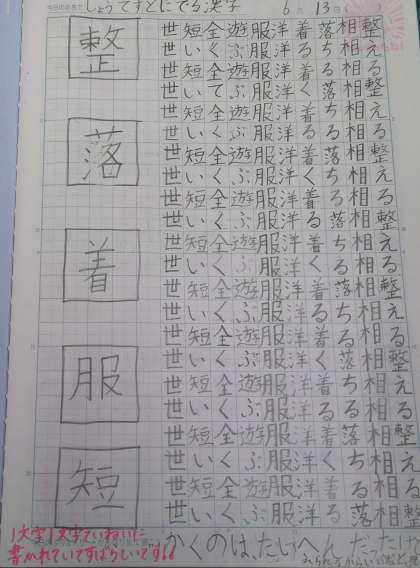 しょうてすとにでる漢字
6月13日
整
落
着
服
短
整える整える整える整える整える整える整える整
相相相相相相相相相相相相相相相相相相相相相相
落ちる落ちる落ちる落ちる落ちる落ちる落ちる落
着る着く着る着く着る着く着る着く着る着く着る
洋洋洋洋洋洋洋洋洋洋洋洋洋洋洋洋洋洋洋洋洋洋
服服服服服服服服服服服服服服服服服服服服服服
遊ぶ遊ぶ遊ぶ遊ぶ遊ぶ遊ぶ遊ぶ遊ぶ遊ぶ遊ぶ遊ぶ
全く全て全く全く全く全く全く全く全く全く全く
短い短い短い短い短い短い短い短い短い短い短い
世世世世世世世世世世世世世世世世世世世世世世
かくのは、たいへんだったけど
1文字1文字ていねいに
書かれていてすばらしいです